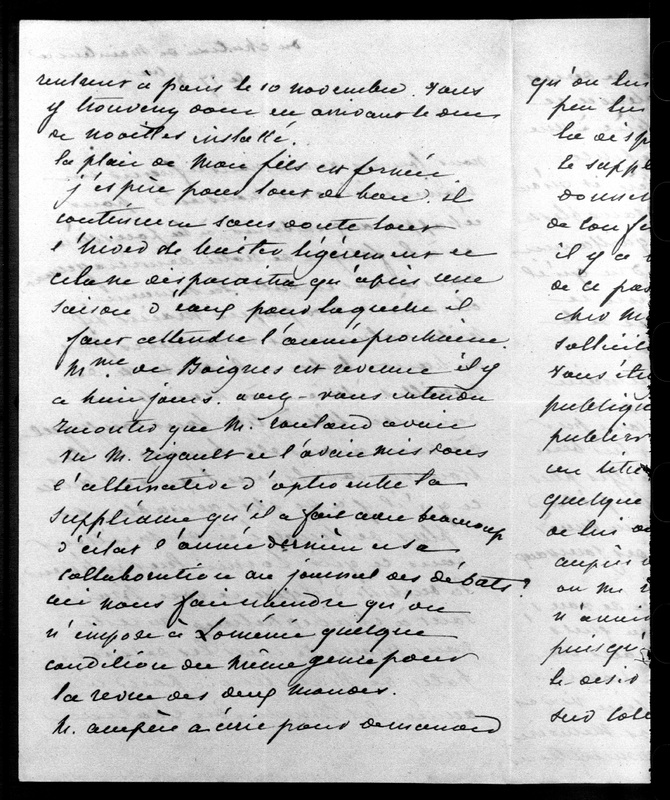 rentrent à paris le 10 novembre. vous
y trouverez donc en arrivant le duc
de noailles installé.
la plaie de mon fils est fermée.
j'espère pour tout de bon. il
continuera sans doute tout
l'hiver de boiter légèrement et
cela ne disparaitra qu'après une
saison d'eaux pour laquelle il
faut attendre l'année prochaine.
Mme de Boignes est revenue il y
a huit jours. avez-vous entendu
raconter que M. rouland avait
vu M. rigault et l'avait mis dans
l'alternative d'opter entre la
suppléance qu'il a fait avec beaucoup
d'éclat l'année dernière et sa
collaboration au journal des débats?
ceci nous fait craindre qu'on
n'impose à Lomenie quelque
condition du même genre pour
la revue des deux mondes.
M. ampère a écrit pour demander
qu'on lui
peu lui
la disp
le suppl
donne
de conf
il y a
de ce pas
cher M
sollicit
vous êt
publiqu
publier
un titre
quelque
de lui
auprès
ou me
n'a
puisqu'
le des
sur